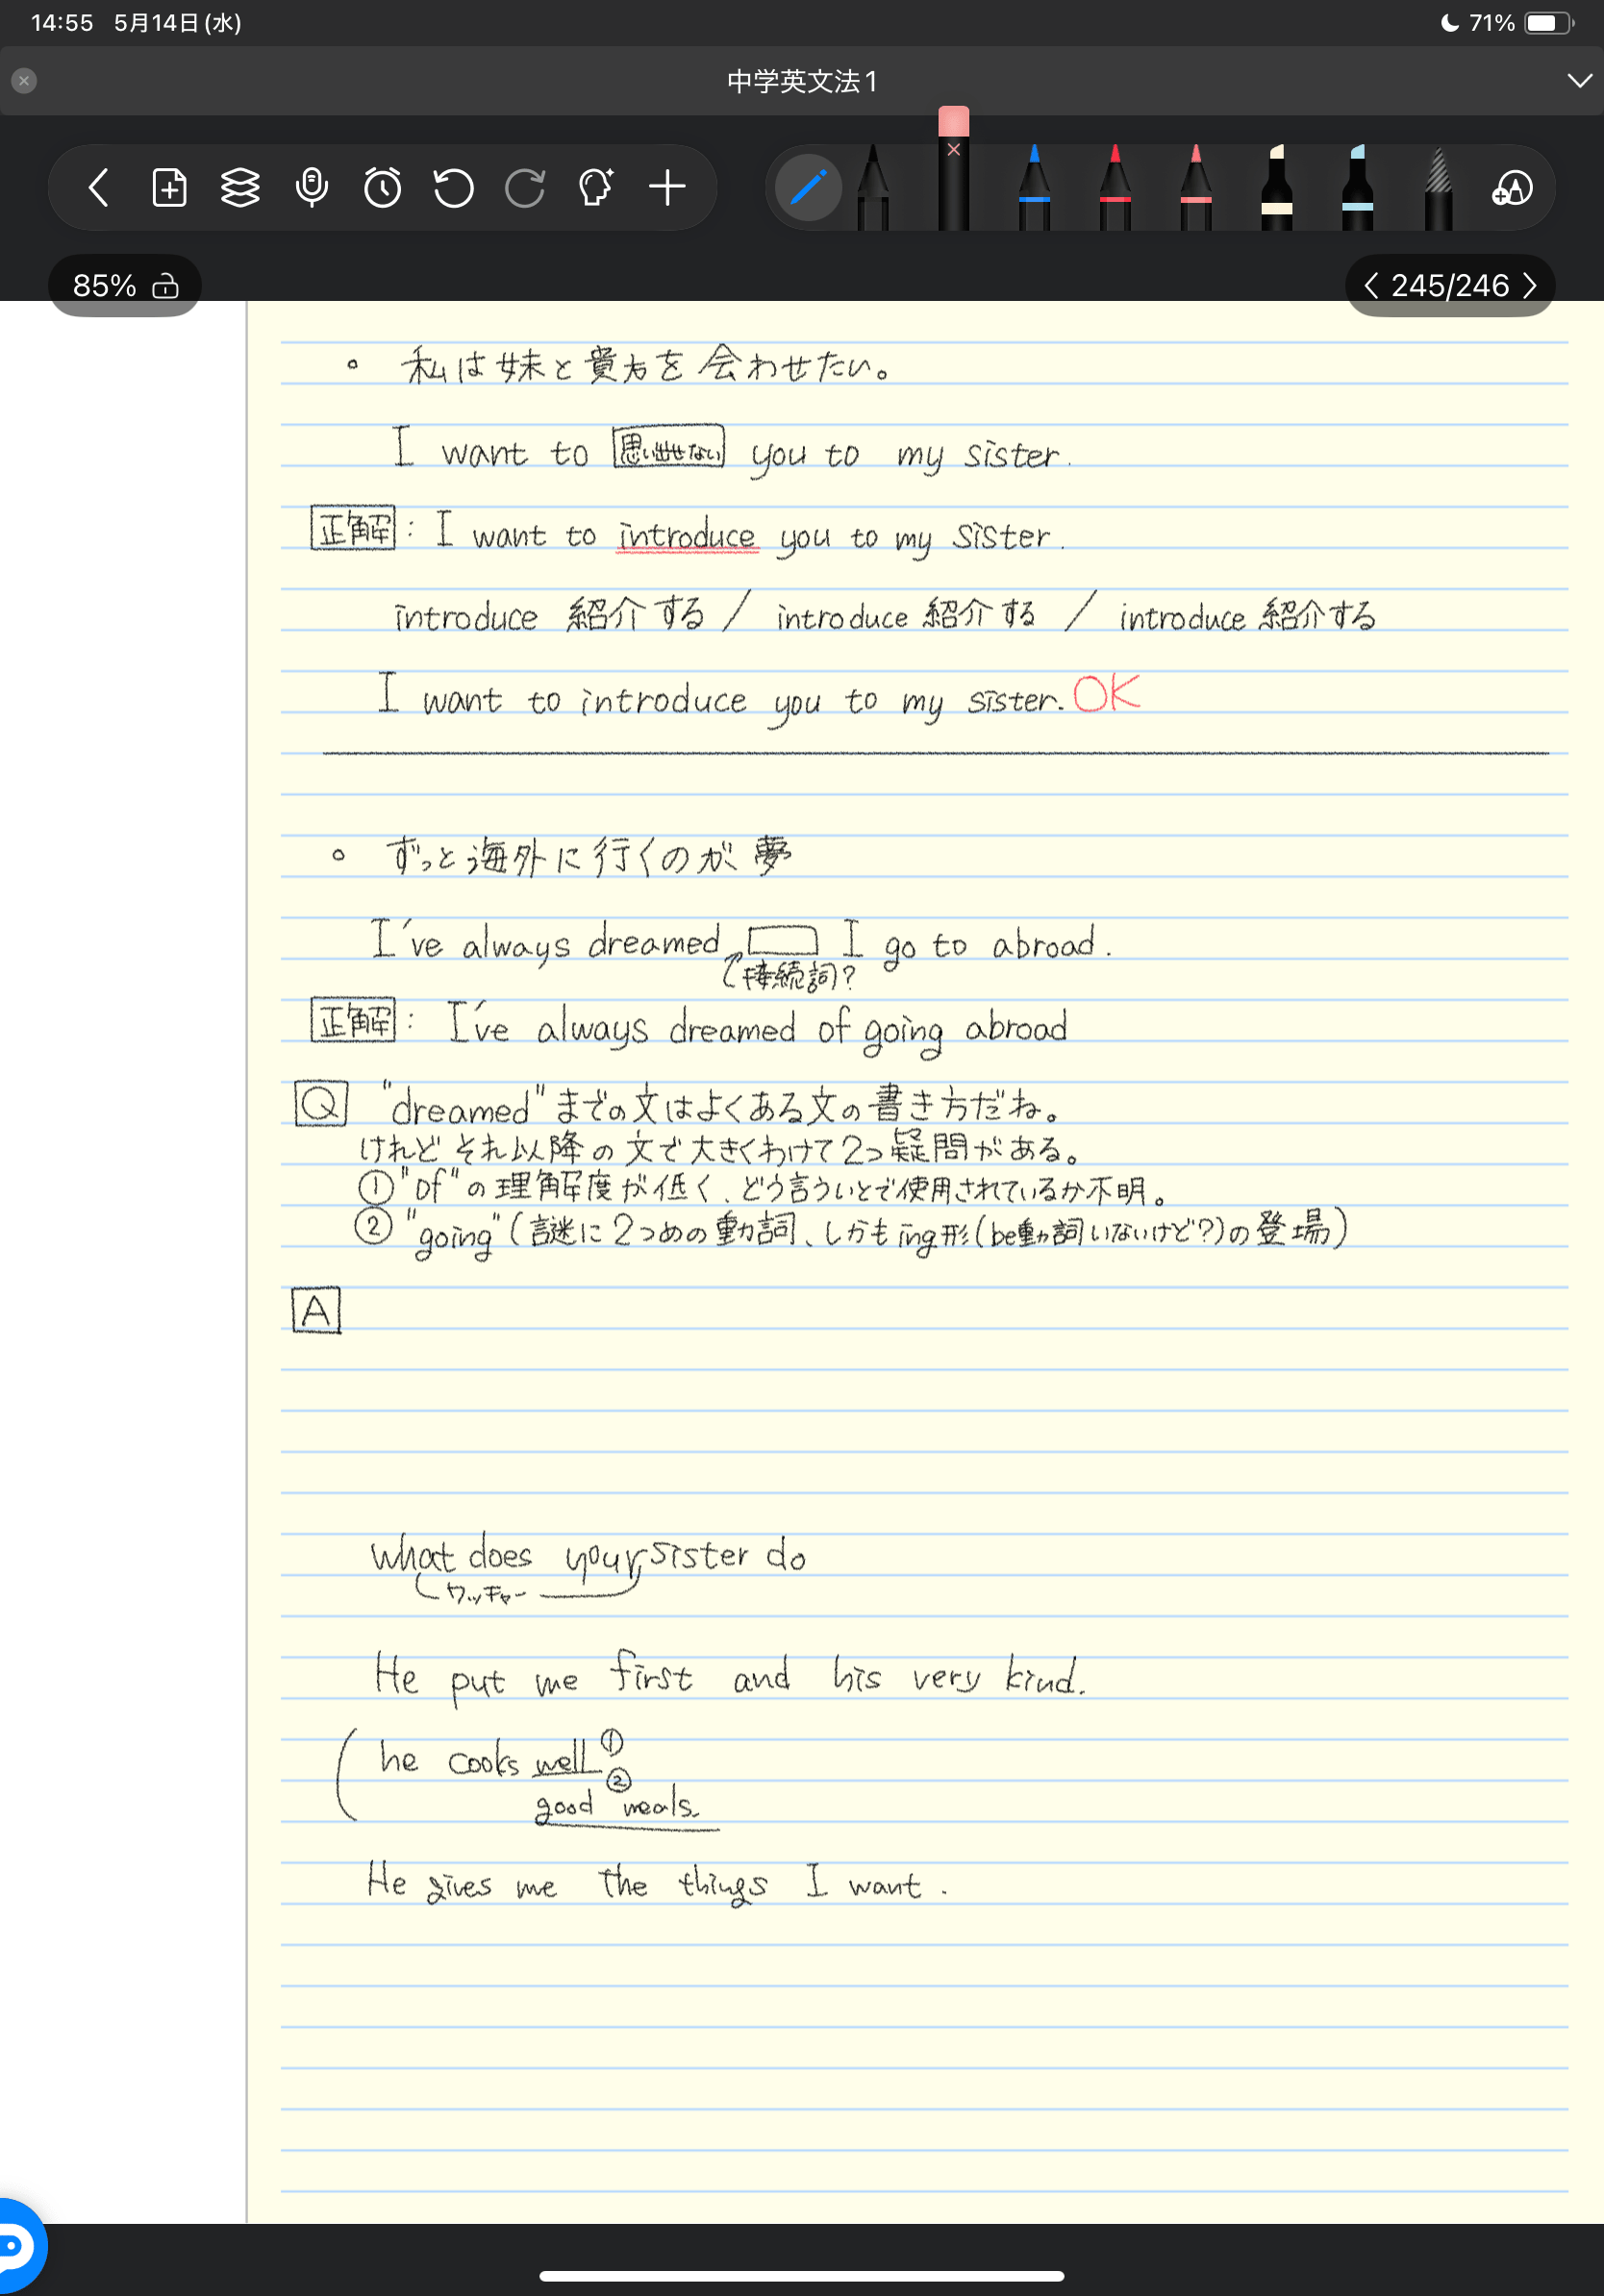 14:55 5月14日(水)
71%
中学英文法1
85%
245/246
。私は妹と貴方を会わせたい。
I want to 思い出せない you to my sister.
正解: I want to introduce you to my sister.
introduce 紹介する / introduce 紹介する / introduce 紹介する
I want to introduce you to my sister. OK
。ずっと海外に行くのが夢
I've always dreamed I go to abroad.
接続詞?
正解: I've always dreamed of going abroad
Q "dreamed"までの文はよくある文の書き方だね。
けれどそれ以降の文で大きくわけて2つ疑問がある。
①"of"の理解度が低く、どう言ういとで使用されているか不明。
②"going"(謎に2つめの動詞、しかもing形(be動詞いないけど?)の登場)
A
What does your sister do
ワッチャー
He put me first and his very kind.
he cooks well ①
② good meals.
He gives me the things I want.